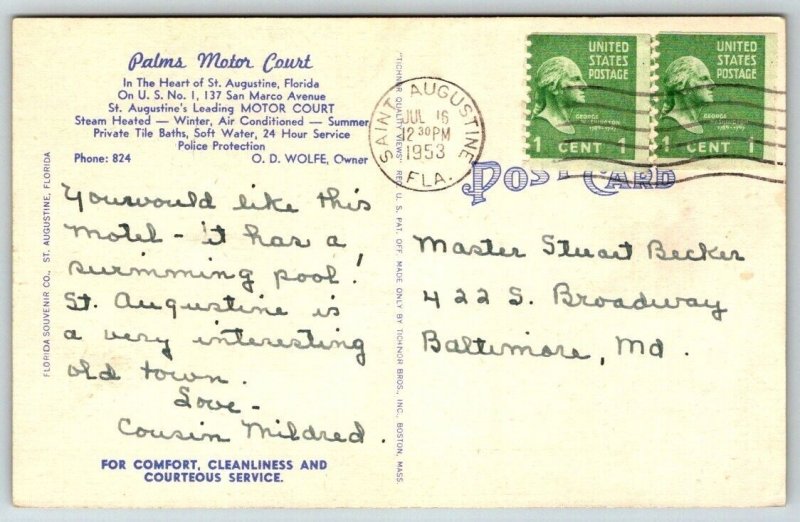 Palms Motor Court
In The Heart of St. Augustine, Florida
On U. S. No. 1, 137 San Marco Avenue
St. Augustine's Leading MOTOR COURT
Steam Heated — Winter, Air Conditioned — Summer
Private Tile Baths, Soft Water, 24 Hour Service
Police Protection
Phone: 824 O. D. WOLFE, Owner
You would like this
motel - it has a
swimming pool!
St. Augustine is
a very interesting
old town.
Love -
Cousin Mildred.
FOR COMFORT, CLEANLINESS AND
COURTEOUS SERVICE.
FLORIDA SOUVENIR CO., ST. AUGUSTINE, FLORIDA
"TICHNOR QUALITY VIEWS" REG. U. S. PAT. OFF. MADE ONLY BY TICHNOR BROS., INC., BOSTON, MASS.
SAINT AUGUSTINE
JUL 16
12 30 PM
1953
FLA.
UNITED
STATES
POSTAGE
GEORGE
WASHINGTON
1 CENT 1
UNITED
STATES
POSTAGE
GEORGE
WASHINGTON
1 CENT 1
POST CARD
Master Stuart Becker
422 S. Broadway
Baltimore, Md.